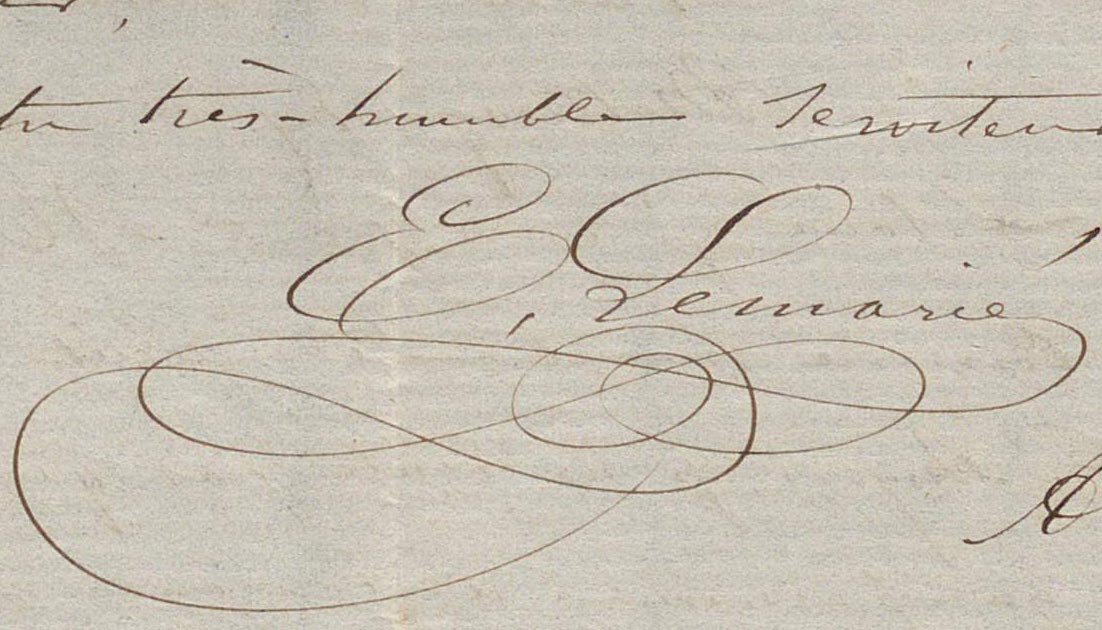 très-humble serviteur
E, Lemarié